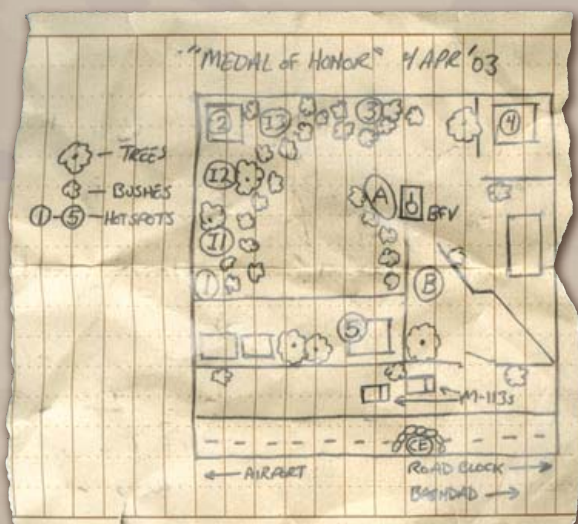 "MEDAL OF HONOR" 4 APR '03
2 I3 3 4
- TREES
- BUSHES
1 - 5 - HOTSPOTS
I2
A BFV
I1
1 B
5
M-113s
CE
← AIRPORT ROAD BLOCK →
BAGHDAD →